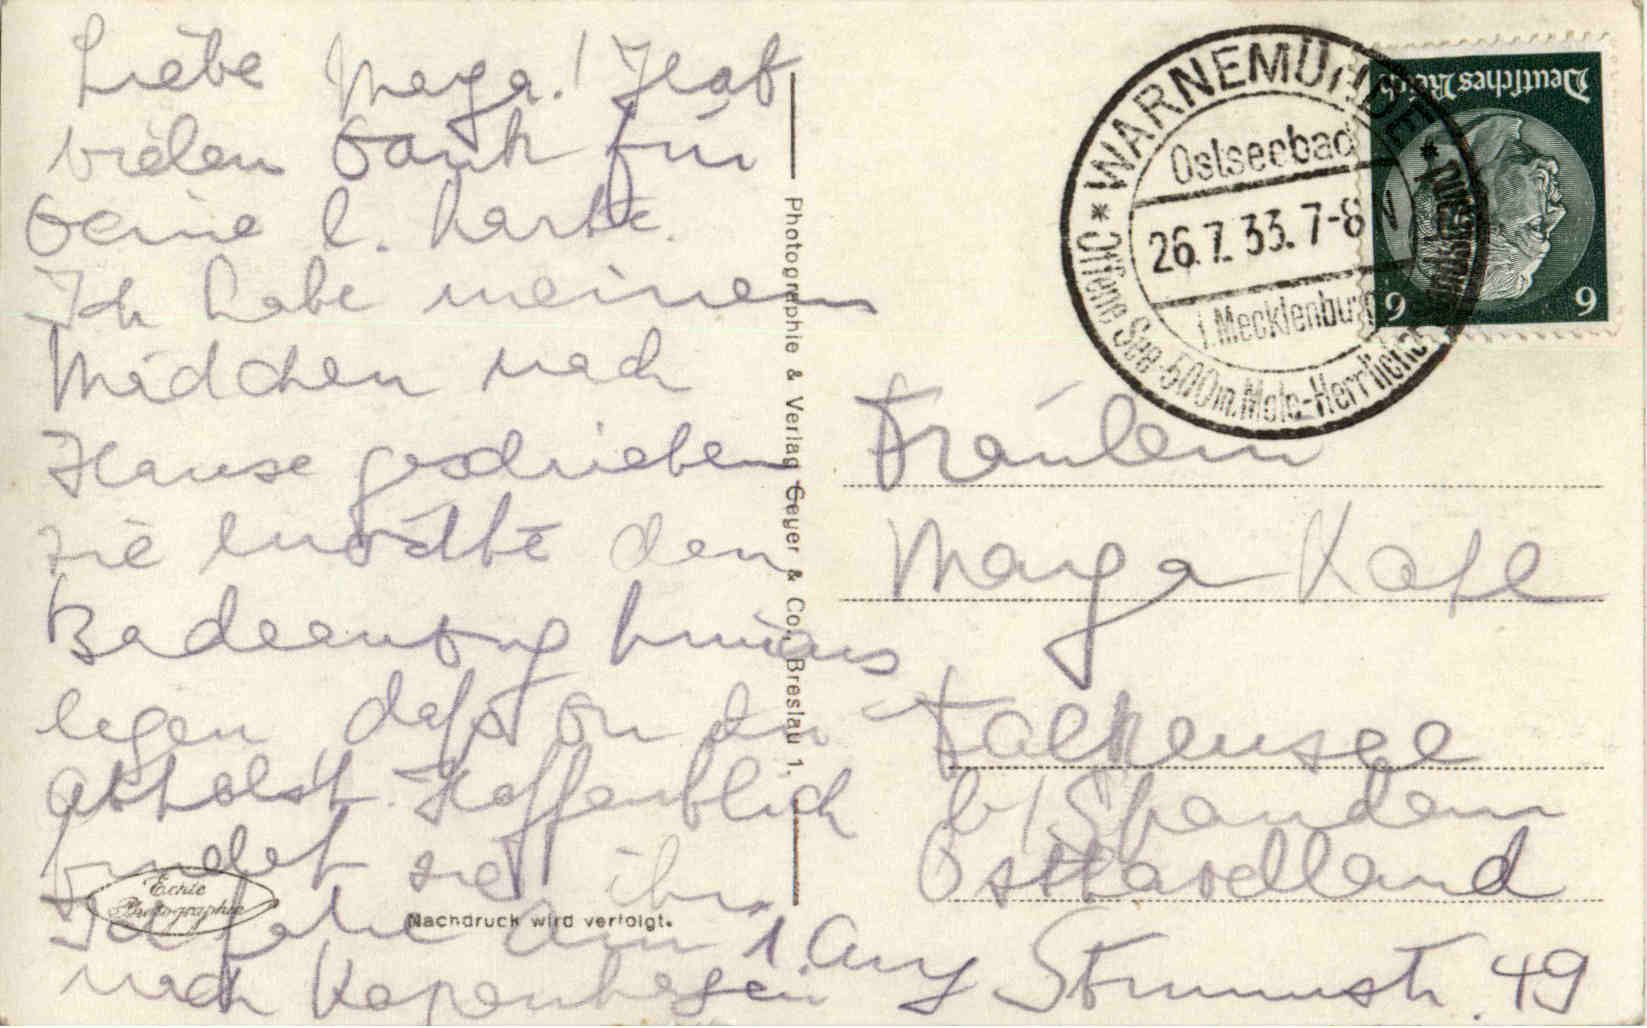 Liebe Marga! Hab
vielen Dank für
Deine l. Karte.
Ich habe meinem
Mädchen nach
Hause geschrieben
sie möchte den
Badeanzug hinaus
legen daß Du ihn
abholst. Hoffentlich
findet sie ihn.
Ich fahre am 1. Aug
nach Kopenhagen
Echte
Photographie
Nachdruck wird verfolgt.
Photographie & Verlag Geyer & Co., Breslau 1.
WARNEMÜNDE
Ostseebad
26.7.33.7-8 N
i. Mecklenburg
Offene See-500m. Mole-Herrlicher
Deutsches Reich
6 6
Fräulein
Marga
Falkensee
b/ Spandau
Osthavelland
49